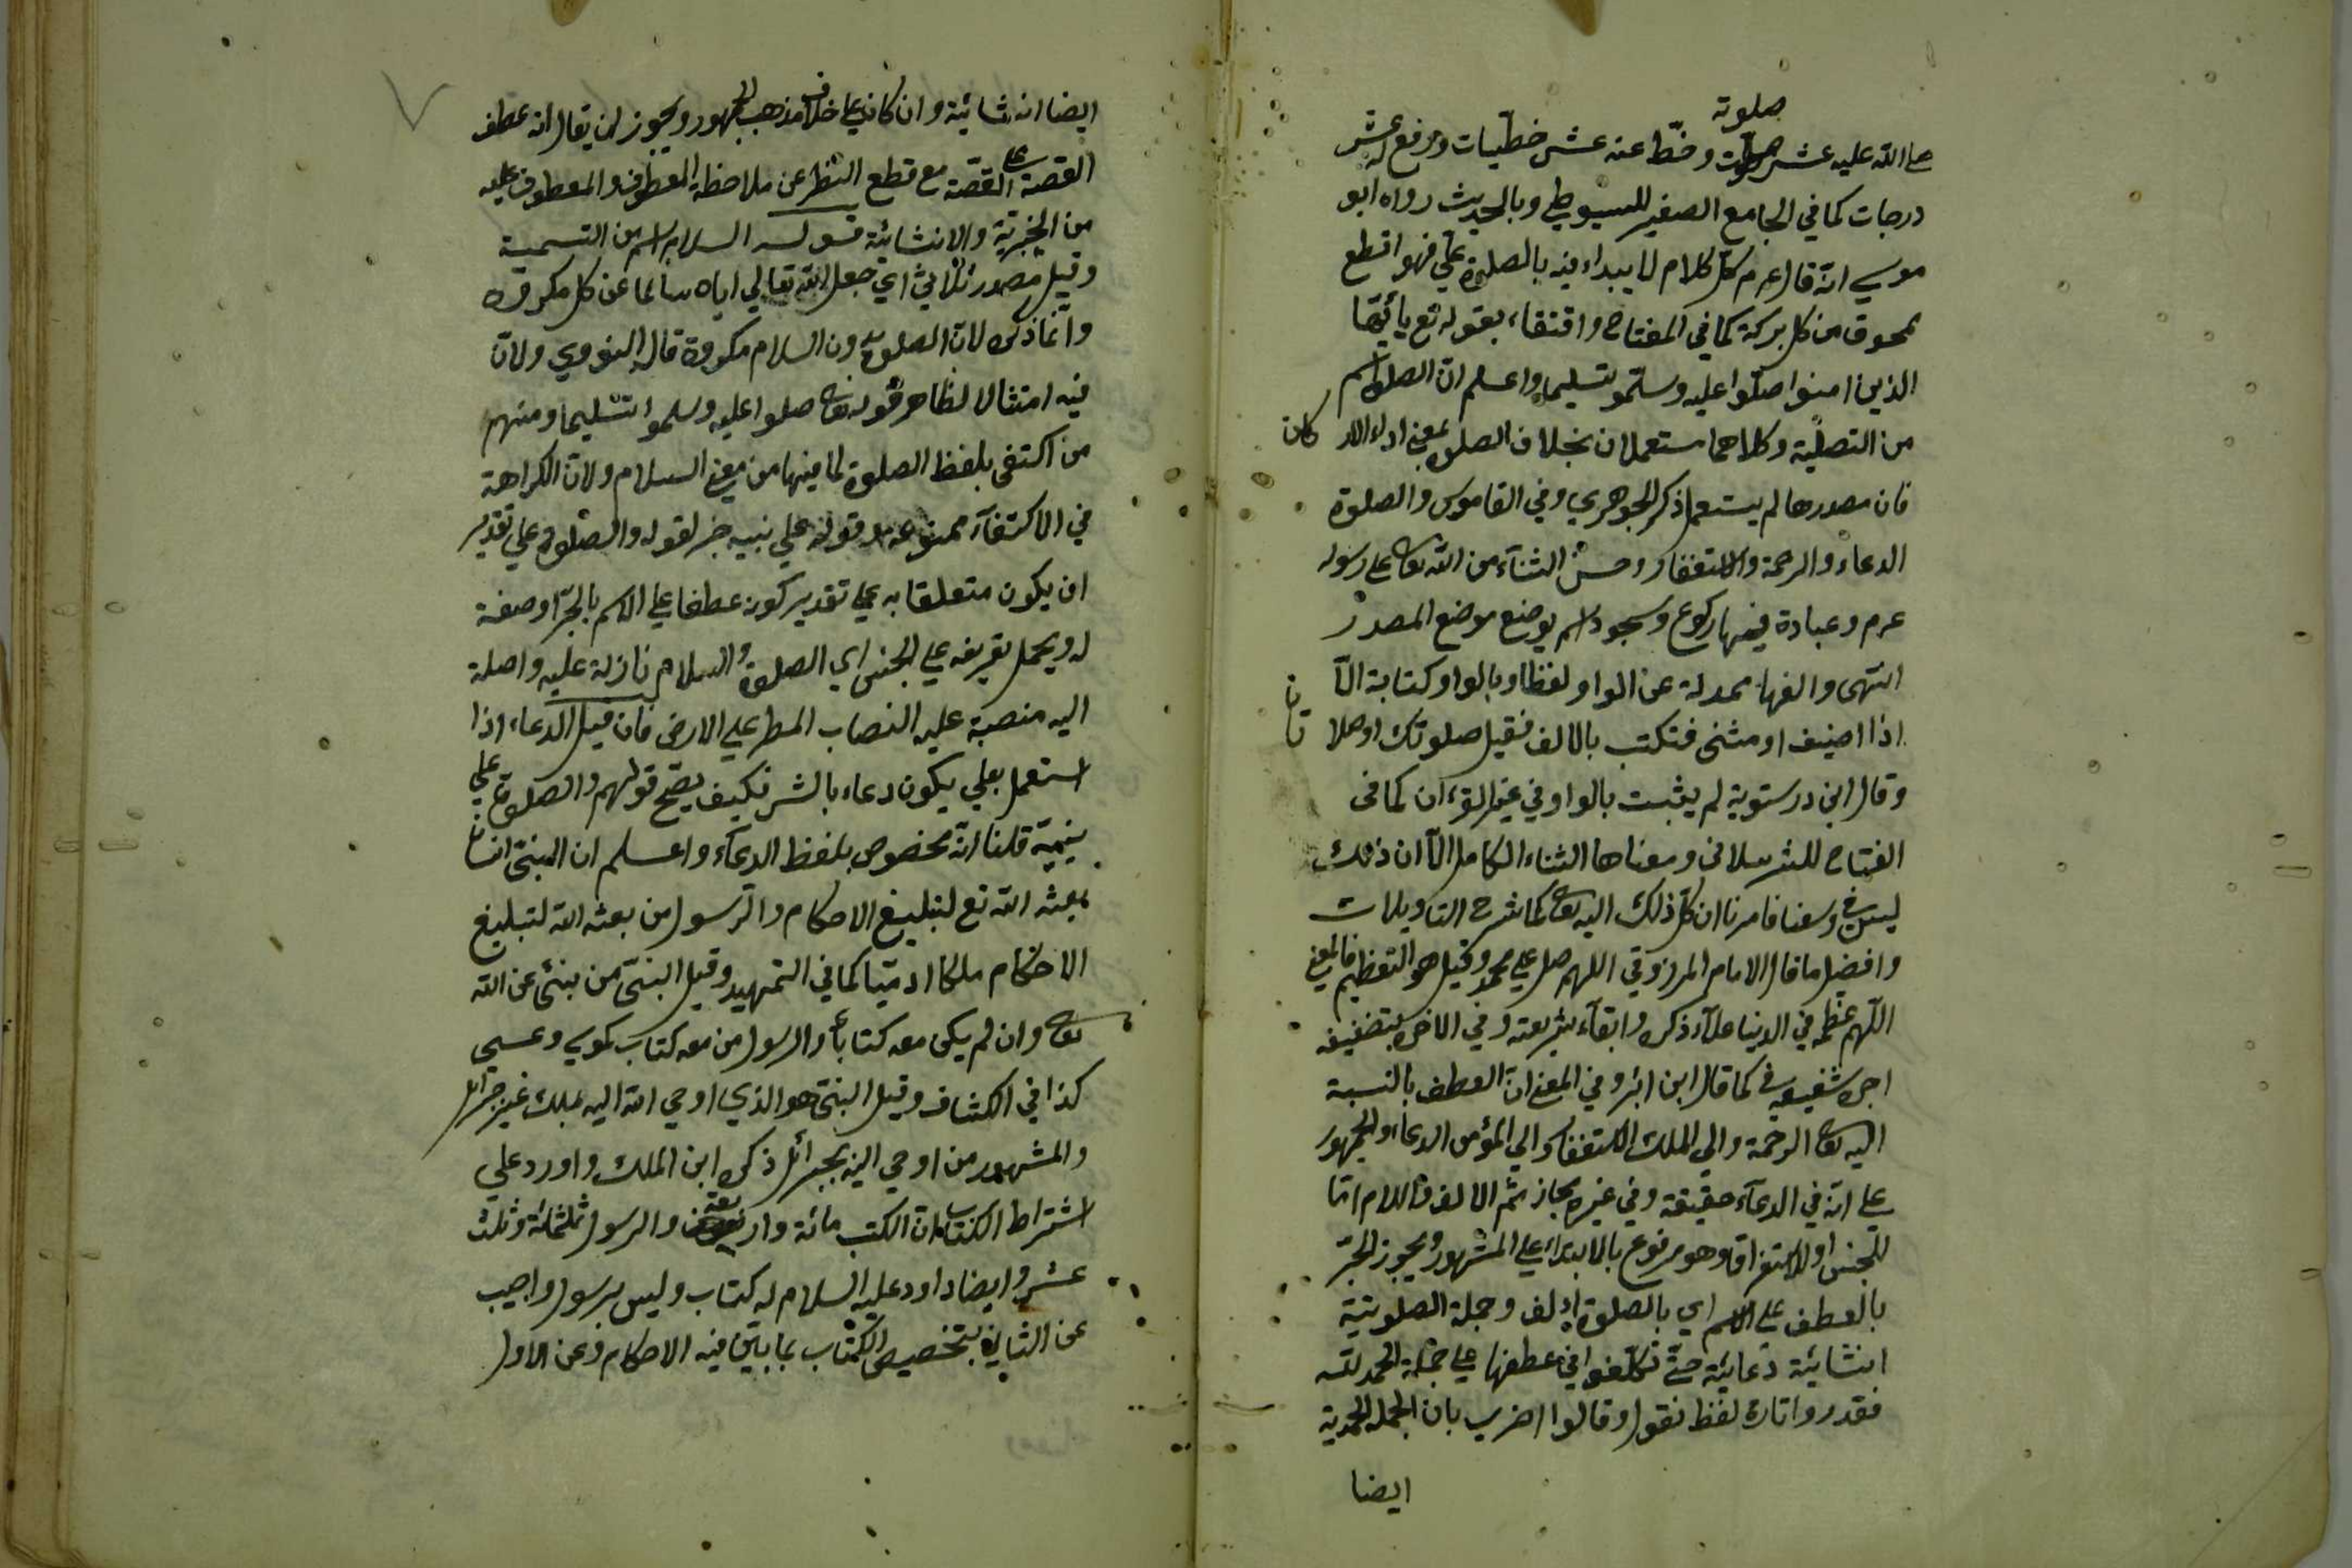 صلوتة
صلى الله عليه عشر صلوت وحّط عنه عشر خطيّات ورفع له عشر
درجات كما في الجامع الصغير للسيوطي وبالحديث رواه ابو
موسي انّه قال عم كلّ كلام لا يبداء فيه بالصلوة علّي فهو اقطع
ممحوق من كل بركة كما في المفتاح واقتفاء بقوله تع يا أيّها
الذين امنوا صلّوا عليه وسلّموا تسليما واعلم انّ الصلوة اسم
من التصلّية وكلاهما مستعملان بخلاف الصلوة بمعنى اداء الار كان
فان مصدرها لم يستعمل ذكره الجوهري وفي القاموس والصلوة
الدعاء والرحمة والاستغفار وحسن الثناء من الله تعا على رسوله
عم وعبادة فيها ركوع وسجود اسم يوضع موضع المصدر
انتهى والفها مبدلة عن الواو لفظا وبالواو كتابة الّا
اذا اضيف او مثنى فتكتب بالالف فقيل صلوتك او صلا تان
وقال ابن درستوية لم يثبت بالواو في غير القرءان كما فى
الفتاح للشرسلانى ومعناها الثناء الكامل الّا ان ذلك
ليس في وسعنا فامرنا ان نكل ذلك اليه تعا كما شرح التاويلات
وافضل ما قال الامام المرزوقي اللهم صل على محمد وقيل هو التعظيم فالمعنى
اللّهم عظّمه في الدنيا علآء ذكره وابقآء شريعته وفي الاخرة بتضعيف
اجره شفيعه في كما قال ابن اثير وفي المغنى انّ العطف بالنسبة
اليه تعا الرحمة والى الملك الاستغفار والى المؤمن الدعاء والجمهور
على انّه في الدعآء حقيقة وفي غيره مجاز ثم الالف واللام امّا
للجنس او للاستغراق وهو مرفوع بالابتداء على المشهور ويجوز الجرّ
بالعطف على الاسم اي بالصلوة وجملة الصلويتية
انشائية دعائية حتّى تكلّفوا في عطفها على جملة الحمد لله
فقدروا تارة لفظ نقول وقالوا اخرى بان الجملة الحمدية
ايضا
ايضا انشائية وان كان على خلاف مذهب الجمهور ويجوز ان يقال انه عطف
القصة على القصّة مع قطع النظر عن ملاحظة المعطوف والمعطوف عليه
من الخبريّة والانشائيّة قوله السلام اسم من التسمية
وقيل مصدر ثلاثيّ اي جعل الله تعالي اياه سالما عن كل مكروه
وانّما ذكره لانّ الصلوة بدون السلام مكروة قاله النووي ولانّ
فيه امتثالا لظاهر قوله تعا صلوا عليه وسلموا تسليما ومنهم
من اكتفى بلفظ الصلوة لما فيها من معنى السلام ولانّ الكراهة
في الاكتفآء ممنوعة قوله علي نبيه خبر لقوله والصلوة علي تقدير
ان يكون متعلقا به على تقدير كونه عطفا على الاسم بالجرّ او صفة
له ويحمل تعريفه على الجنس اي الصلوة والسلام نازلة عليه واصلة
اليه منصبّة عليه انصباب المطر علي الارض فان قيل الدعاء اذا
استعمل بعلي يكون دعاء بالشر فكيف يصّح قولهم والصلوة على
نبيّه قلنا انّه مخصوص بلفظ الدعآء واعلم ان النبىّ انسان
بعثه الله تع لتبليغ الاحكام والرّسول من بعثه الله لتبليغ
الاحكام ملكا او ادميّا كما في التمهيد وقيل النبىّ من ينبئ عن الله
تعا وان لم يكن معه كتاباً والرسول من معه كتاب كموسي وعيسى
كذا في الكشاف وقيل النبىّ هو الذي اوحي الله اليه بملك غير جبرائل
والمشهور من اوحي اليه بجبرائل ذكره ابن الملك واورد علي
اشتراط الكتاب بانّ الكتب مائة واربعة والرسول ثلثمائة وثلث
عشر وايضا داود عليه السلام له كتاب وليس برسول واجيب
عن الثاني بتخصيص الكتاب بما بيّن فيه الاحكام وعن الاول